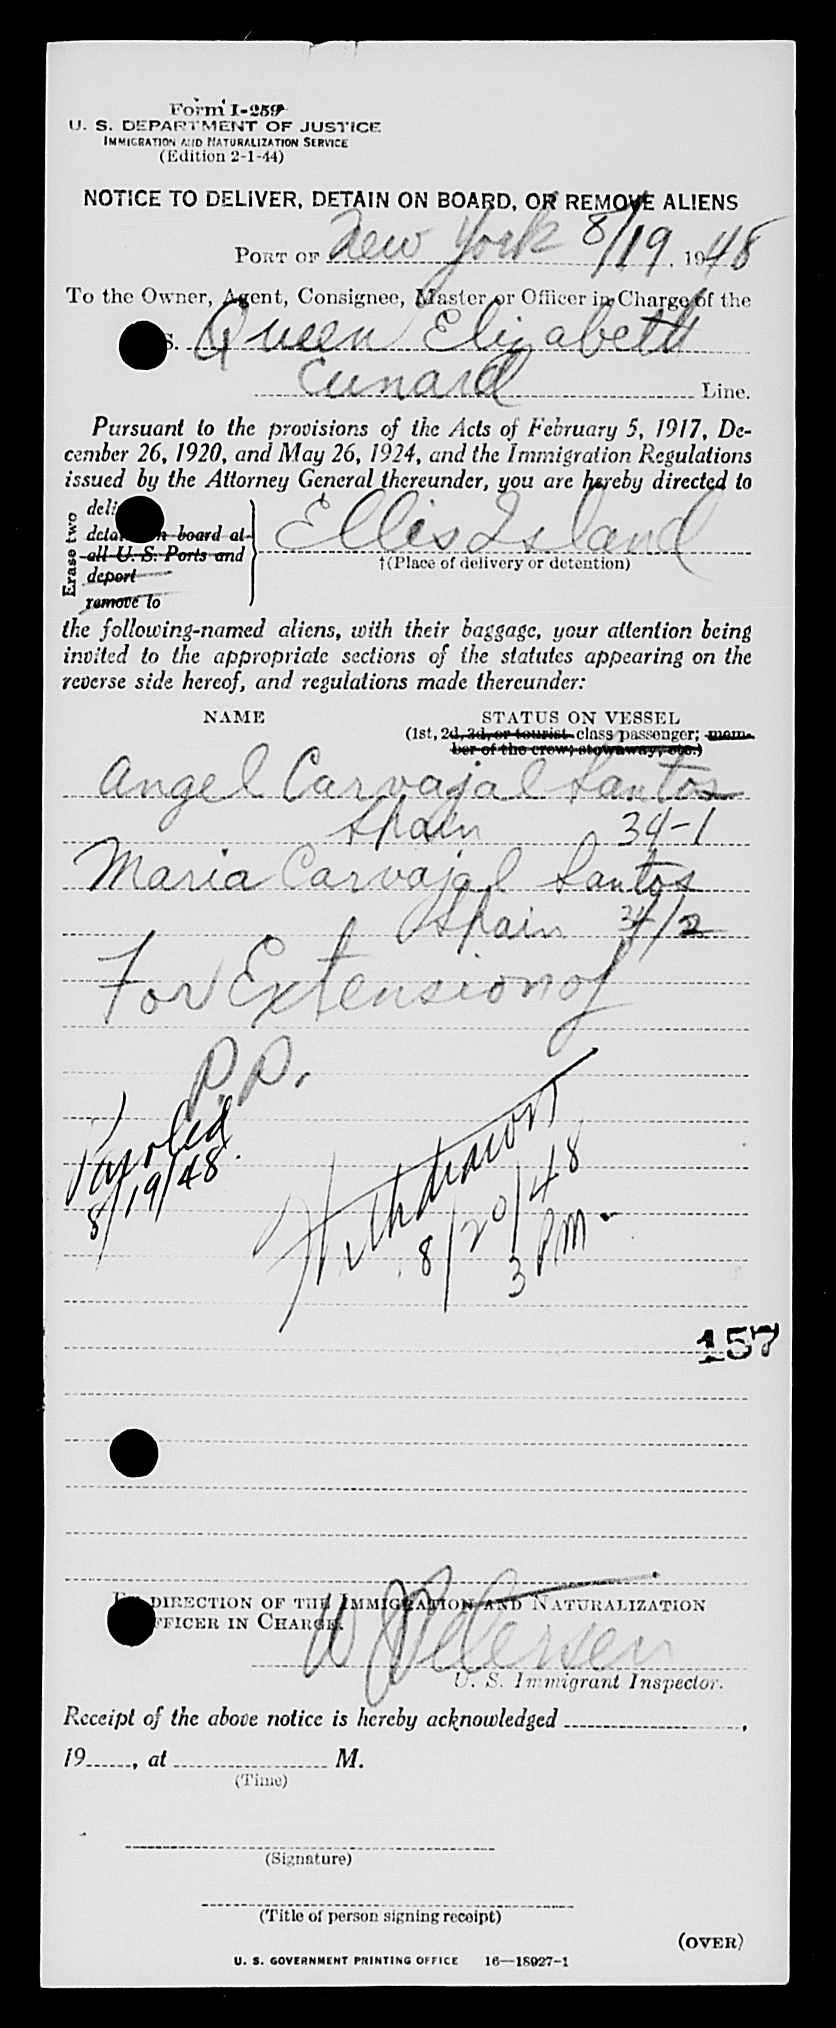 Form I-259
U. S. DEPARTMENT OF JUSTICE
IMMIGRATION AND NATURALIZATION SERVICE
(Edition 2-1-44)
NOTICE TO DELIVER, DETAIN ON BOARD, OR REMOVE ALIENS
PORT OF New York 8/19, 1948
To the Owner, Agent, Consignee, Master or Officer in Charge of the
S. Queen Elizabeth
Cunard Line.
Pursuant to the provisions of the Acts of February 5, 1917, De-
cember 26, 1920, and May 26, 1924, and the Immigration Regulations
issued by the Attorney General thereunder, you are hereby directed to
Erase two
deli
deta n board at
all U. S. Ports and
deport
remove to
Ellis Island
†(Place of delivery or detention)
the following-named aliens, with their baggage, your attention being
invited to the appropriate sections of the statutes appearing on the
reverse side hereof, and regulations made thereunder:
NAME STATUS ON VESSEL
(1st, 2d, 3d, or tourist class passenger; mem-
ber of the crew; stowaway, etc.)
Angel Carvajal Santos
Spain 34-1
Maria Carvajal Santos
Spain 34/2
For Extension of
P.P.
Paroled
8/19/48.
Withdrawn
8/20/48
3 PM
157
DIRECTION OF THE IMMIGRATION AND NATURALIZATION
FFICER IN CHARGE.
W Petersen
U. S. Immigrant Inspector.
Receipt of the above notice is hereby acknowledged ,
19 , at M.
(Time)
(Signature)
(Title of person signing receipt)
(OVER)
U. S. GOVERNMENT PRINTING OFFICE 16—18927-1